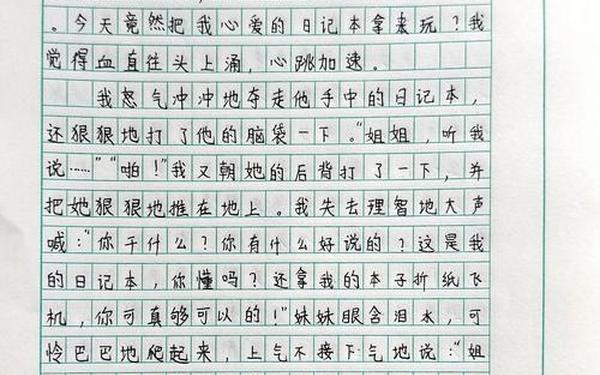 。今天竟然把我心爱的日记本拿来玩？我
觉得血直往头上涌，心跳加速。
我怒气冲冲地夺走他手中的日记本，
还狠狠地打了他的脑袋一下。“姐姐，听我
说……”“啪！”我又朝她的后背打了一下，并
把她狠狠地推在地上。我失去理智地大声
喊：“你干什么？你有什么好说的？这是我
的日记本，你懂吗？还拿我的本子折纸飞
机，你可真够可以的！”妹妹眼含泪水，可
怜巴巴地爬起来，上气不接下气地说：“姐